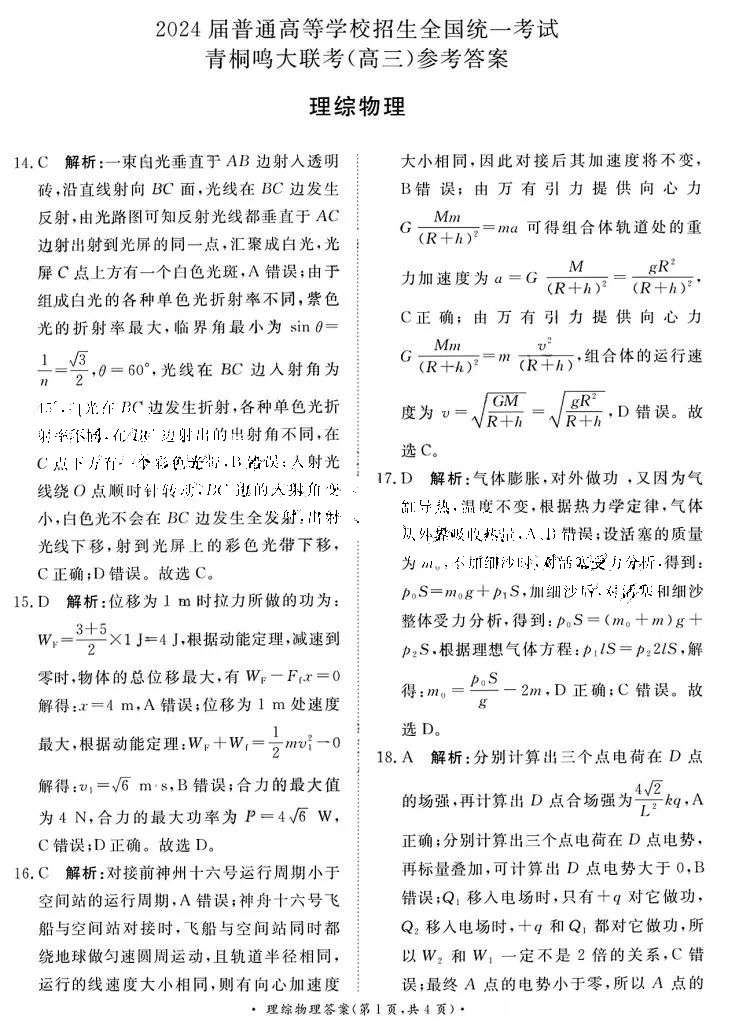 2024 届普通高等学校招生全国统一考试
青桐鸣大联考(高三)参考答案
理综物理
14. C 解析:一束白光垂直于 AB 边射入透明
砖,沿直线射向 BC 面,光线在 BC 边发生
反射,由光路图可知反射光线都垂直于 AC
边射出射到光屏的同一点,汇聚成白光,光
屏 C 点上方有一个白色光斑,A 错误;由于
组成白光的各种单色光折射率不同,紫色
光的折射率最大,临界角最小为 sin θ=
1/n=√3/2,θ=60°,光线在 BC 边入射角为
45°,光在 BC 边发生折射,各种单色光折
射率不同,在 BC 边射出的出射角不同,在
C 点下方有一个彩色光带,B 错误;入射光
线绕 O 点顺时针转动,BC 边的入射角变
小,白色光不会在 BC 边发生全发射,出射
光线下移,射到光屏上的彩色光带下移,
C 正确;D 错误。故选 C。
15. D 解析:位移为 1 m 时拉力所做的功为:
W_F=(3+5)/2×1 J=4 J,根据动能定理,减速到
零时,物体的总位移最大,有 W_F−F_f x=0
解得:x=4 m,A 错误;位移为 1 m 处速度
最大,根据动能定理:W_F+W_f=1/2 mv₁²−0
解得:v₁=√6 m·s,B 错误;合力的最大值
为 4 N,合力的最大功率为 P=4√6 W,
C 错误;D 正确。故选 D。
16. C 解析:对接前神州十六号运行周期小于
空间站的运行周期,A 错误;神舟十六号飞
船与空间站对接时,飞船与空间站同时都
绕地球做匀速圆周运动,且轨道半径相同,
运行的线速度大小相同,则有向心加速度
大小相同,因此对接后其加速度将不变,
B 错误;由万有引力提供向心力
G Mm/(R+h)²=ma 可得组合体轨道处的重
力加速度为 a=G M/(R+h)²=gR²/(R+h)²,
C 正确;由万有引力提供向心力
G Mm/(R+h)²=m v²/(R+h),组合体的运行速
度为 v=√(GM/(R+h))=√(gR²/(R+h)),D 错误。故
选 C。
17. D 解析:气体膨胀,对外做功,又因为气
缸导热,温度不变,根据热力学定律,气体
从外界吸收热量,A、B 错误;设活塞的质量
为 m₀,不加细沙时,对活塞受力分析,得到:
p₀S=m₀g+p₁S,加细沙后,对活塞和细沙
整体受力分析,得到:p₀S=(m₀+m)g+
p₂S,根据理想气体方程:p₁lS=p₂2lS,解
得:m₀=p₀S/g−2m,D 正确;C 错误。故
选 D。
18. A 解析:分别计算出三个点电荷在 D 点
的场强,再计算出 D 点合场强为 4√2/L² kq,A
正确;分别计算出三个点电荷在 D 点电势,
再标量叠加,可计算出 D 点电势大于 0,B
错误;Q₁ 移入电场时,只有+q 对它做功,
Q₂ 移入电场时,+q 和 Q₁ 都对它做功,所
以 W₂ 和 W₁ 一定不是 2 倍的关系,C 错
误;最终 A 点的电势小于零,所以 A 点的
· 理综物理答案(第 1 页,共 4 页) ·